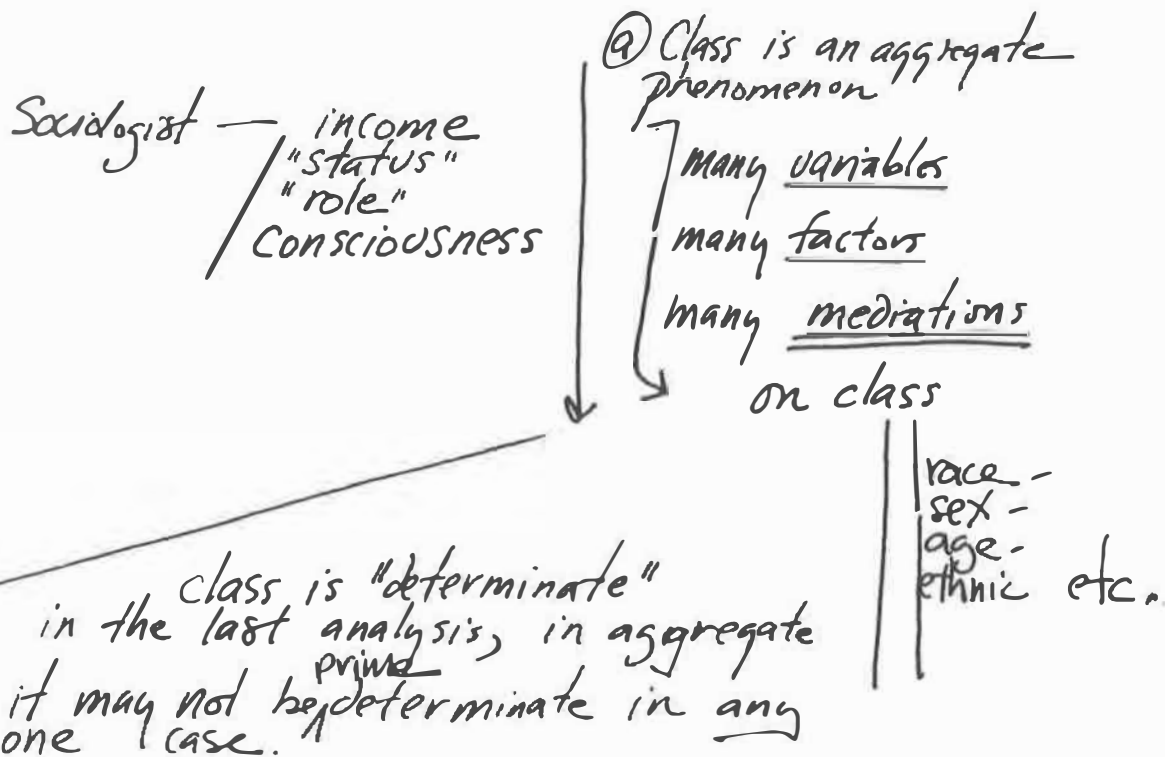 Sociologist — income
"status"
"role"
Consciousness
ⓐ Class is an aggregate
phenomenon
many variables
many factors
many mediations
on class
race -
sex -
age -
ethnic etc.
class is "determinate"
in the last analysis, in aggregate
it may not be prime determinate in any
one case.